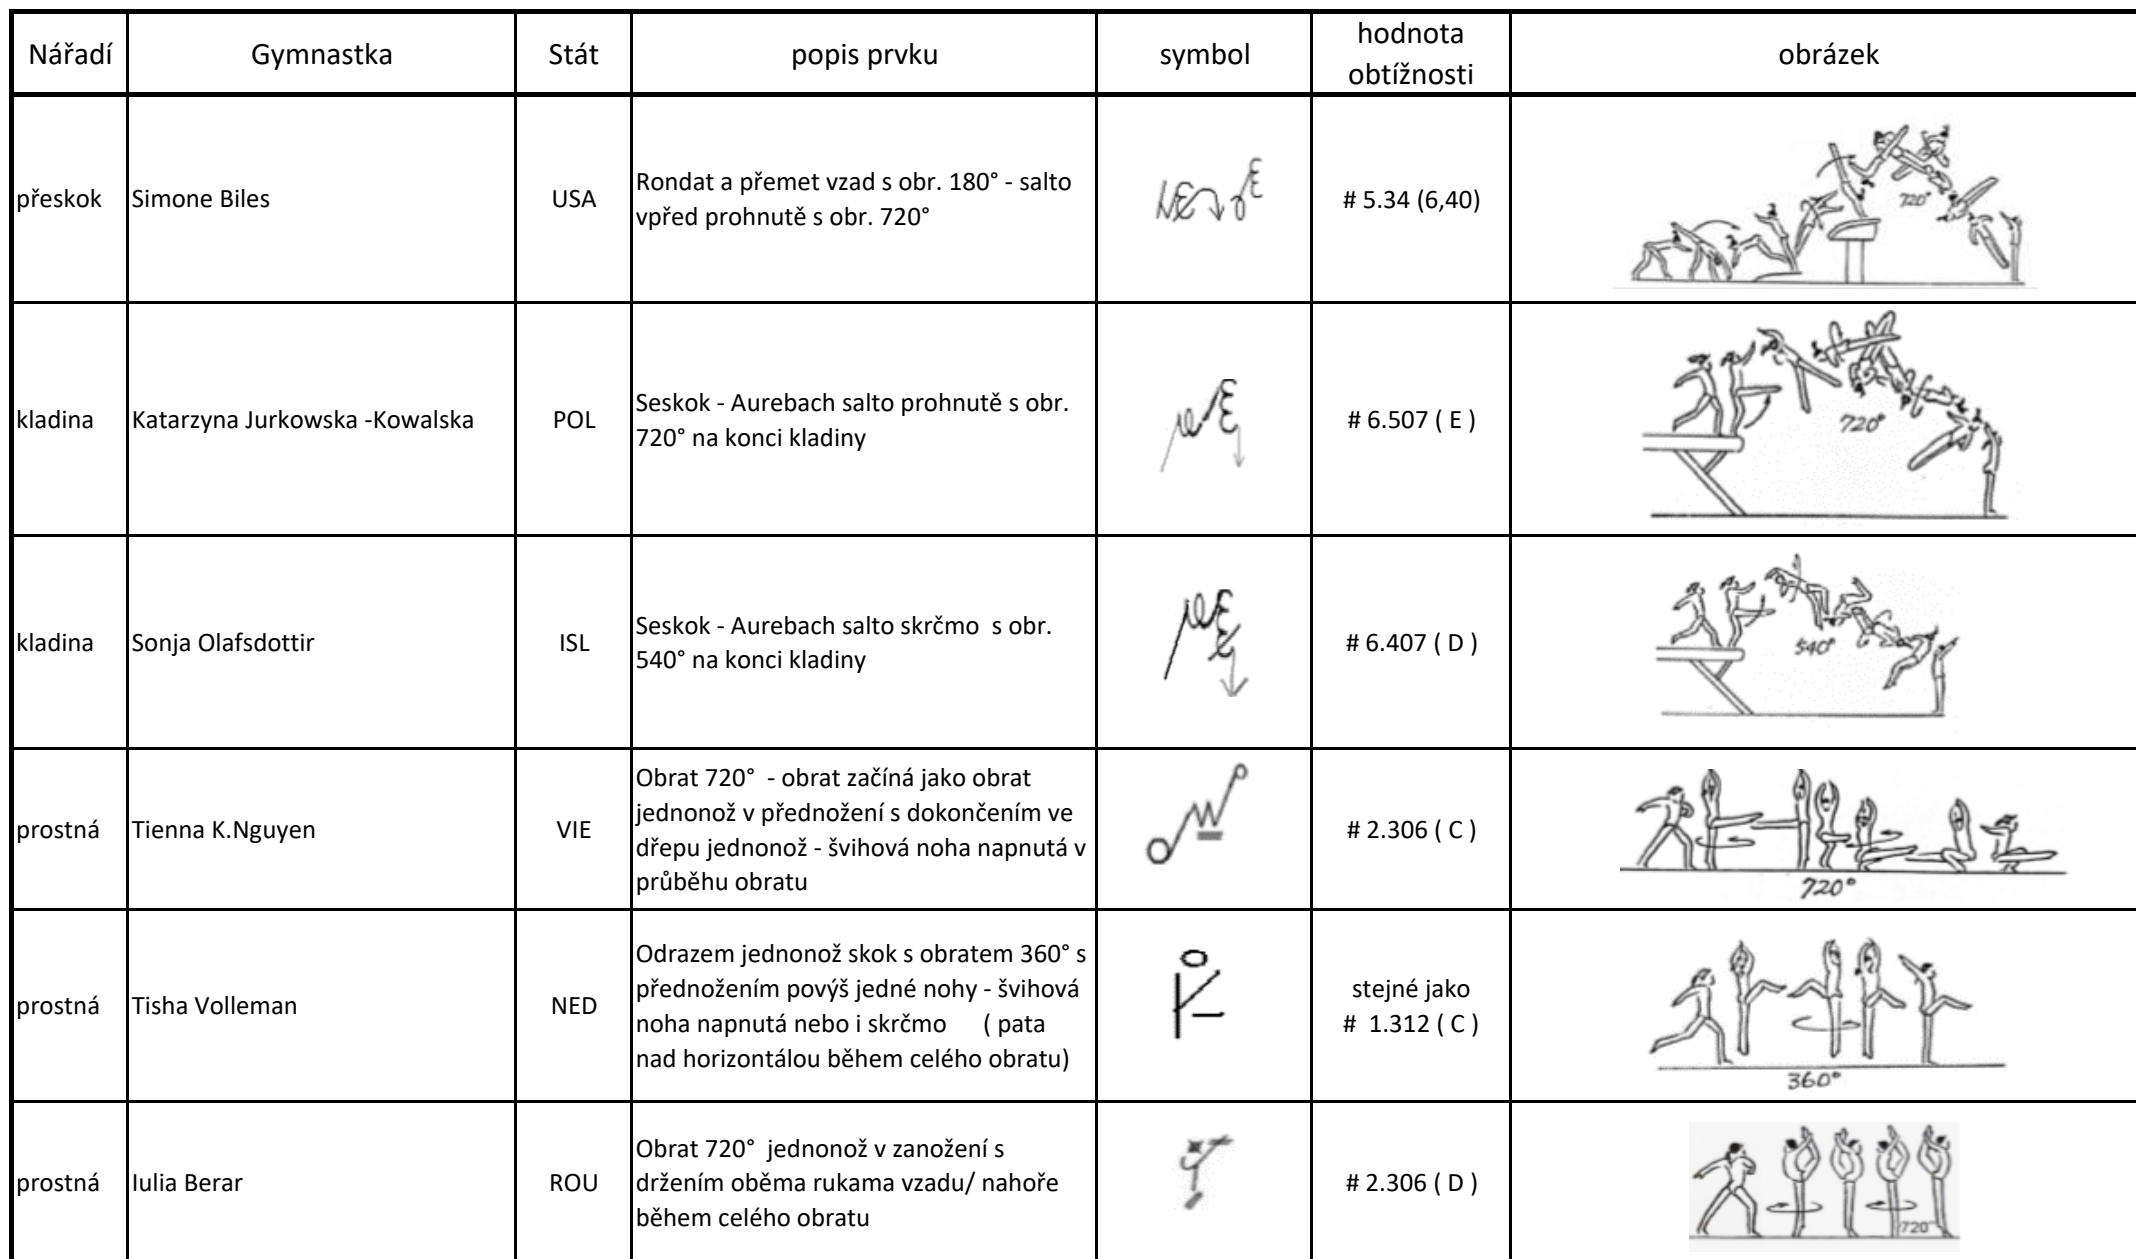 Nářadí
Gymnastka
Stát
popis prvku
symbol
hodnota
obtížnosti
obrázek
přeskok
Simone Biles
USA
Rondat a přemet vzad s obr. 180° - salto
vpřed prohnutě s obr. 720°
# 5.34 (6,40)
720°
kladina
Katarzyna Jurkowska -Kowalska
POL
Seskok - Aurebach salto prohnutě s obr.
720° na konci kladiny
# 6.507 ( E )
720°
kladina
Sonja Olafsdottir
ISL
Seskok - Aurebach salto skrčmo  s obr.
540° na konci kladiny
# 6.407 ( D )
540°
prostná
Tienna K.Nguyen
VIE
Obrat 720°  - obrat začíná jako obrat
jednonož v přednožení s dokončením ve
dřepu jednonož - švihová noha napnutá v
průběhu obratu
# 2.306 ( C )
720°
prostná
Tisha Volleman
NED
Odrazem jednonož skok s obratem 360° s
přednožením povýš jedné nohy - švihová
noha napnutá nebo i skrčmo      ( pata
nad horizontálou během celého obratu)
stejné jako
#  1.312 ( C )
360°
prostná
Iulia Berar
ROU
Obrat 720°  jednonož v zanožení s
držením oběma rukama vzadu/ nahoře
během celého obratu
# 2.306 ( D )
720°